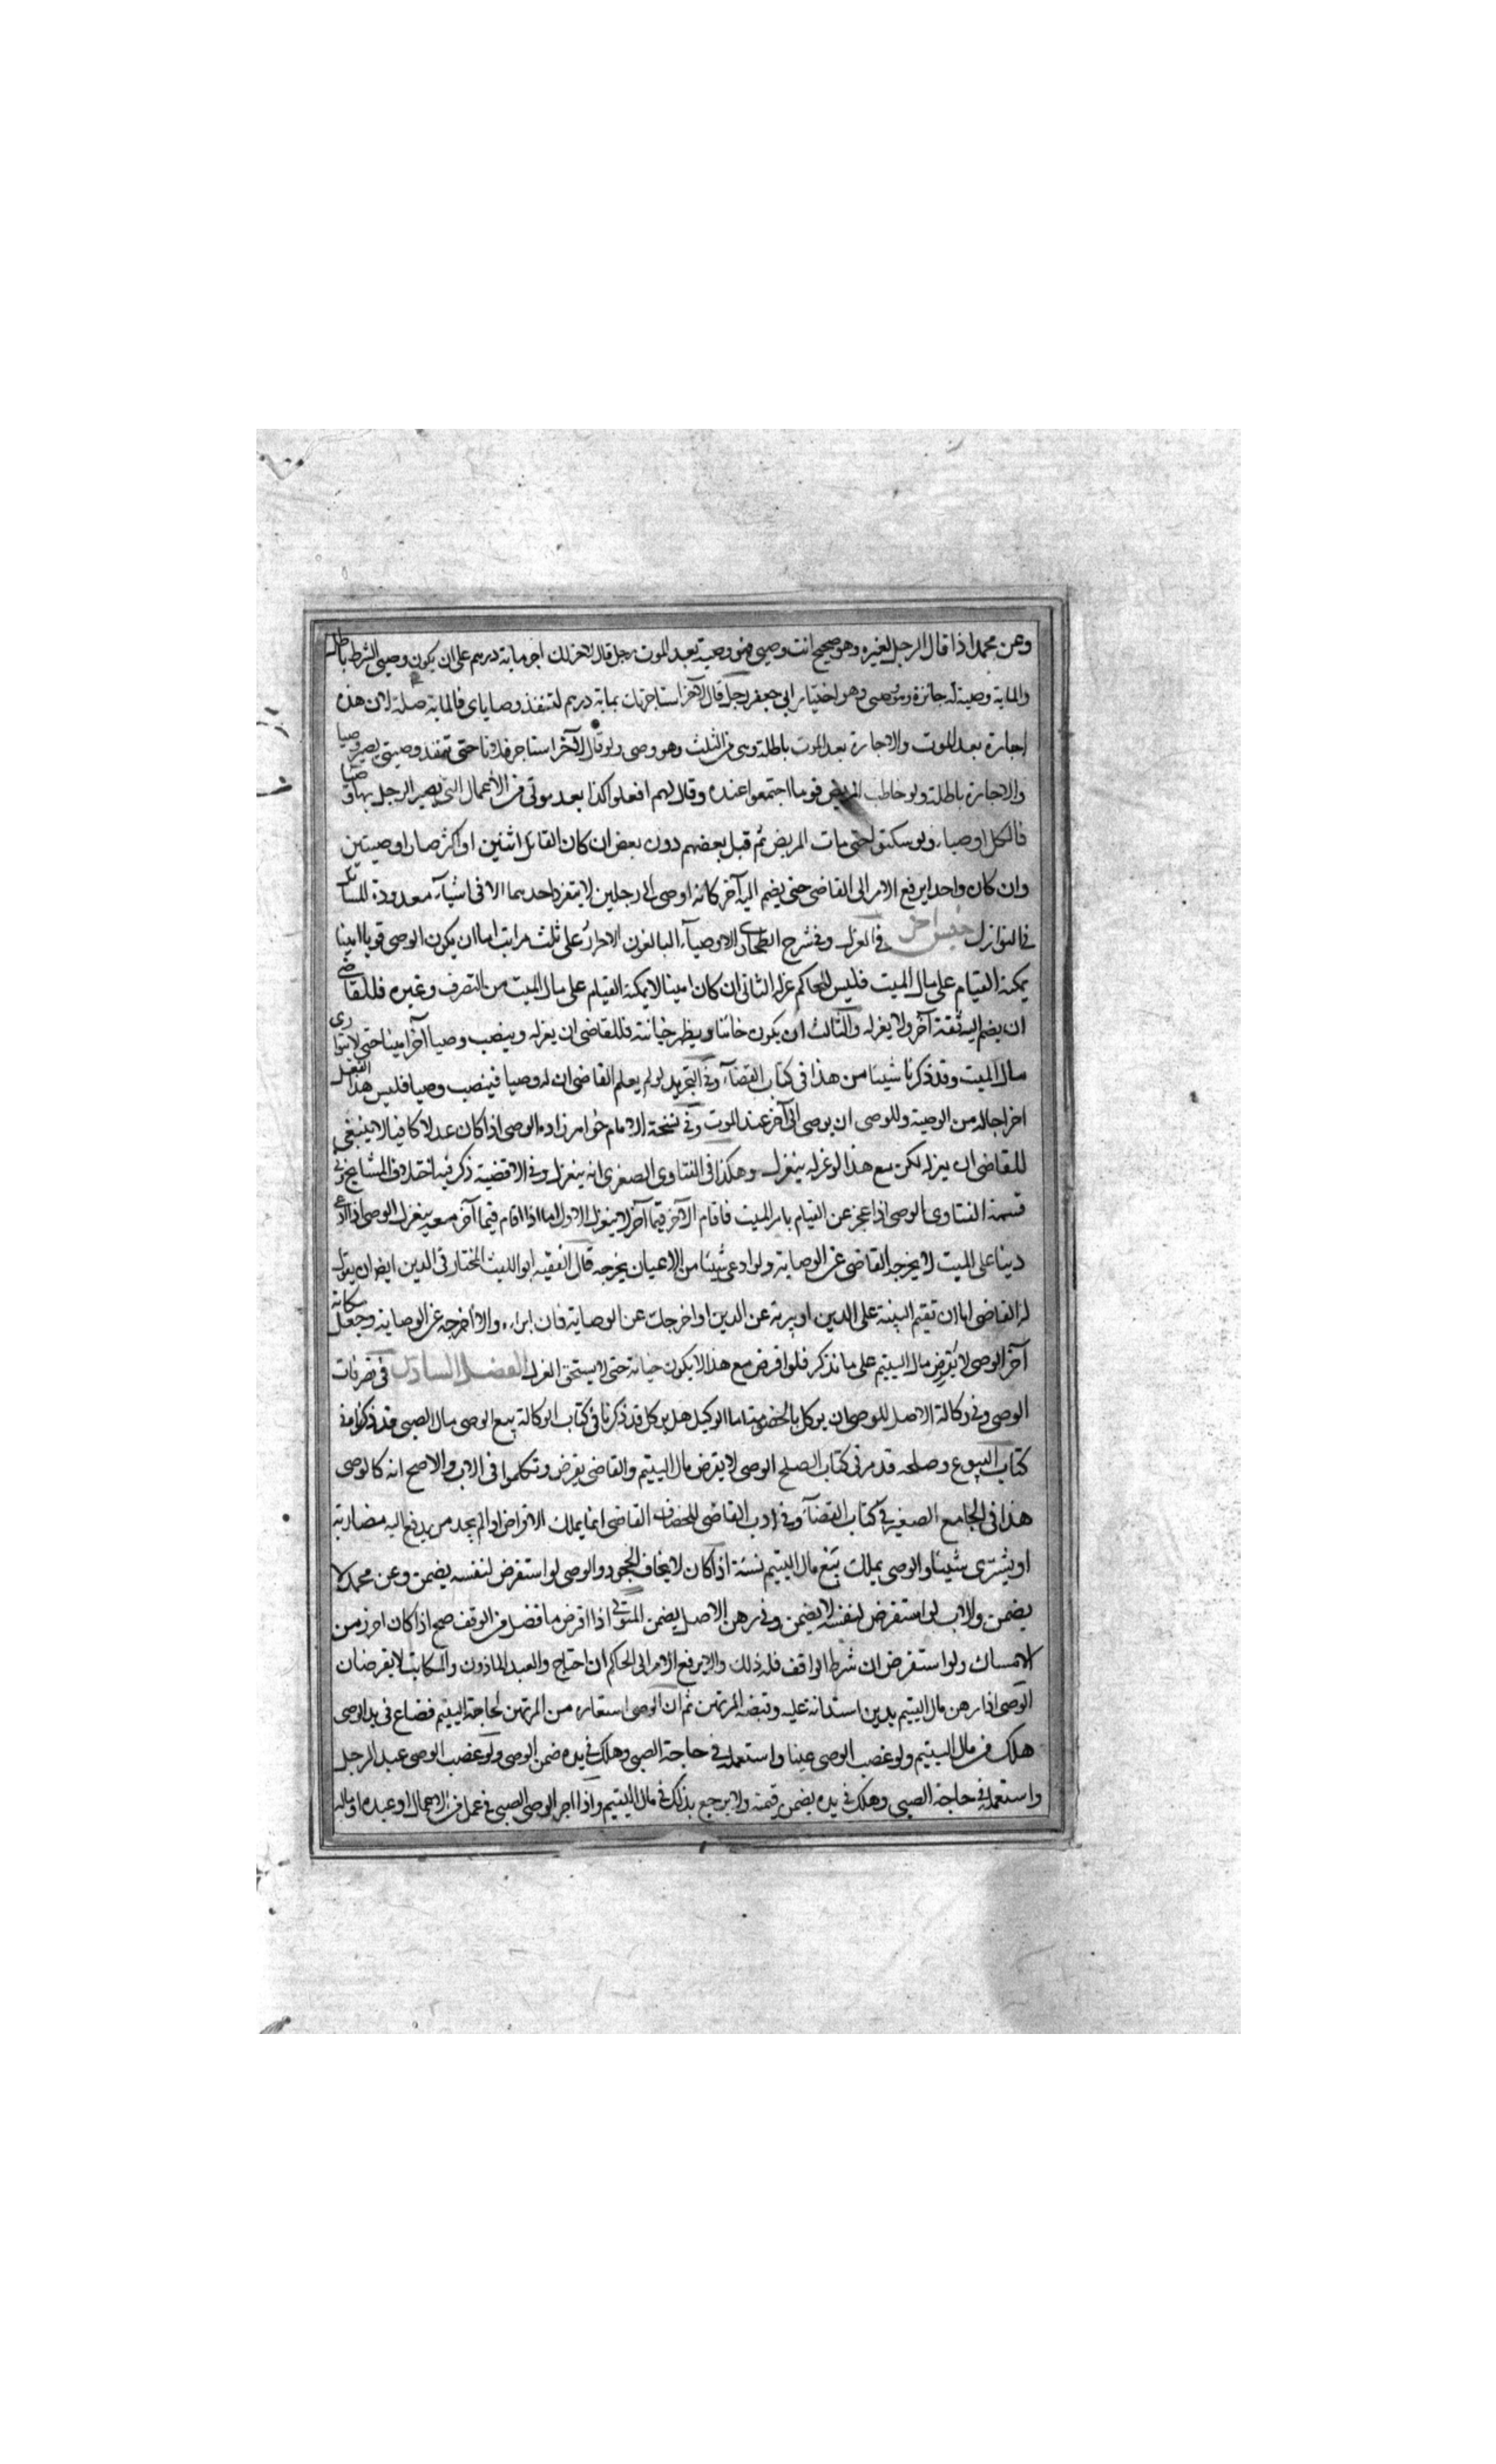 وعن محمد اذا قال الرجل لغيره وهو صحيح انت وصيي فهو وصيه بعد الموت رجل قال لاخر لك اجر ماية درهم على ان يكون وصيي الشرط باطل
والماية وصية له جائزة وهو وصي وهو اختيار ابي جعفر رجل قال لآخر استاجرتك بماية درهم لتنفذ وصاياى فالماية صلة لان هذه
اجارة بعد الموت والاجارة بعد الموت باطلة وهى من الثلث وهو وصى ولو قال لآخر استاجر فلانا حتى تنفذ وصيتى يصير وصيا
والاجارة باطلة ولو خاطب المريض قوما اجتمعوا عنده وقال لهم افعلوا كذا بعد موتى من الأعمال التى يصير الرجل بها وصيا
فالكل اوصياء ولو سكتوا حتى مات المريض ثم قبل بعضهم دون بعض ان كان القائل اثنين او اكثر صار او صيتين
وان كان واحد ايرفع الامر الى القاضى حتى يضم اليه آخر كانه اوصى الى رجلين لا يتفرد احدهما الا فى اشيآء معدودة المسائل
فى النوازل جنس آخر فى العزل وفى شرح الطحاوى الاوصيآء البالغون الاحرار على ثلث مراتب اما ان يكون الوصى قويا امينا
يمكنه القيام على مال الميت فليس للحاكم عزله الثانى ان كان امينا لا يمكنه القيام على مال الميت من التصرف وغيره فللقاضى
ان يضم اليه ثقة آخر ولا يعزله والثالث ان يكون خائنا ويظهر خيانته فللقاضى ان يعزله وينصب وصيا آخر امينا حتى لا يتوارى
مال الميت وقد ذكرنا شيئا من هذا فى كتاب القضآء وفى التجريد لو لم يعلم القاضى ان له وصيا فينصب وصيا فليس هذا الفعل
اخراجا له من الوصية وللوصى ان يوصى الى آخر عند الموت وفى نسخة الامام خواهر زاده الوصى اذا كان عدلا كافيا لا ينبغى
للقاضى ان يعزله لكن مع هذا لو عزله ينعزل وهكذا فى الفتاوى الصغرى انه ينعزل وفى الاقضية ذكر فيه اختلاف المشايخ وفى
قسمة الفتاوى الوصى اذا عجز عن القيام بامر الميت فاقام الآخر قيما آخر لا ينعزل الاول اما اذا اقام قيما آخر معه ينعزل الوصى اذا ادعى
دينا على الميت لا يخرجه القاضى عن الوصاية ولو ادعى شيئا من الاعيان يخرجه قال الفقيه ابو الليث المختار فى الدين ايضا ان يقول
له القاضى اما ان تقيم البينة على الدين او تبرئه عن الدين او اخرجك عن الوصاية فان ابراء والا اخرجه عن الوصاية وجعل مكانه
آخر الوصى لا يقرض مال اليتيم على ما نذكر فلو اقرض مع هذا لا يكون خيانة حتى لا يستحق العزل الفصل السادس فى تصرفات
الوصى وفى وكالة الاصل للوصى ان يوكل بالخصومة اما الوكيل هل يوكل قد ذكرنا فى كتاب الوكالة بيع الوصى مال الصبى قد ذكرنا فى
كتاب البيوع وصلحه قد مر فى كتاب الصلح الوصى لا يقرض مال اليتيم والقاضى يقرض وتكلموا فى الاب والاصح انه كالوصى
هذا فى الجامع الصغير فى كتاب القضآء وفى ادب القاضى للخصاف القاضى انما يملك الاقراض اذا لم يجد من يدفع اليه مضاربة
او يشترى شيئا والوصى يملك بيع مال اليتيم نسئة اذا كان لا يخاف الجحود والوصى لو استقرض لنفسه يضمن وعن محمد لا
يضمن والاب لو استقرض لنفسه لا يضمن وفى رهن الاصل يضمن المتولى اذا اقرض ما فضل من الوقف صح اذا كان احرز من
الامساك ولو استقرض ان شرط الواقف فله ذلك والا يرفع الامر الى الحاكم ان احتاج والعبد الماذون والمكاتب لا يقرضان
الوصى اذا رهن مال اليتيم بدين استدانه عليه وقبضه المرتهن ثم ان الوصى استعاره من المرتهن لحاجة اليتيم فضاع فى يد الوصى
هلك من مال اليتيم ولو غصب الوصى عينا واستعمله فى حاجة الصبى وهلك فى يده ضمن الوصى ولو غصب الوصى عبد الرجل
واستعمله فى حاجة الصبى وهلك فى يده يضمن قيمته ولا يرجع بذلك فى مال اليتيم واذا اجر الوصى الصبى فى عمل من الاعمال او عبده او ماله